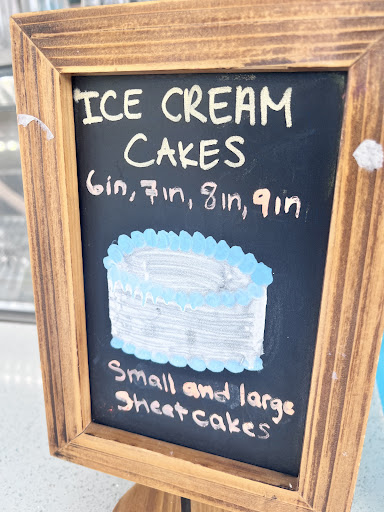 ICE CREAM
CAKES
6in, 7in, 8in, 9in
Small and large
Sheet cakes